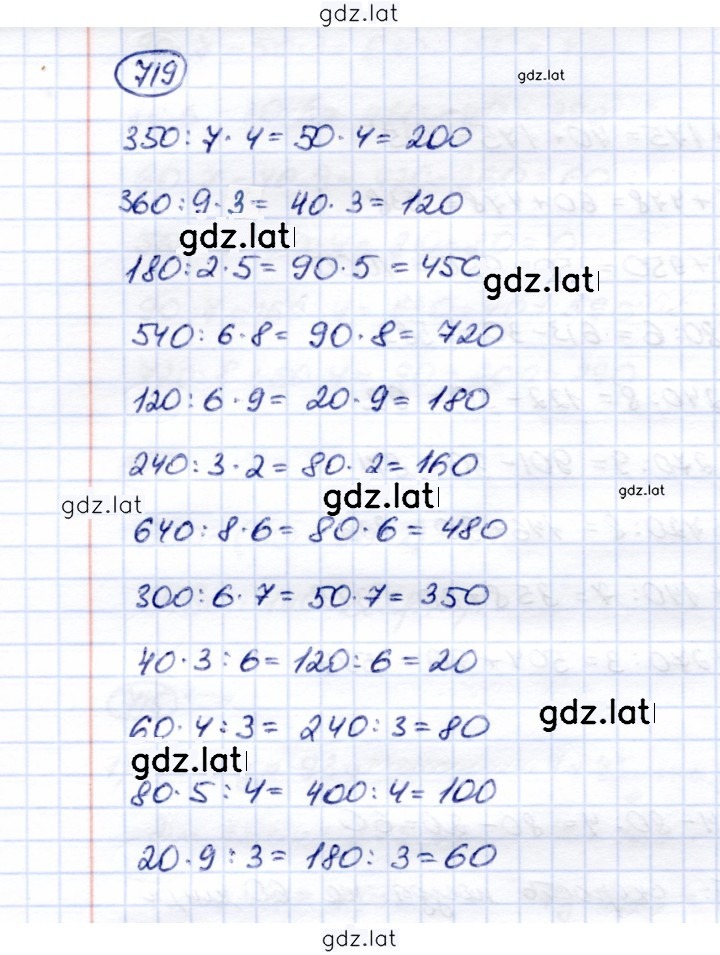 gdz.lat
719
gdz.lat
350 : 7 · 4 = 50 · 4 = 200
360 : 9 · 3 = 40 · 3 = 120
gdz.lat
180 : 2 · 5 = 90 · 5 = 450
gdz.lat
540 : 6 · 8 = 90 · 8 = 720
120 : 6 · 9 = 20 · 9 = 180
240 : 3 · 2 = 80 · 2 = 160
gdz.lat
gdz.lat
gdz.lat
640 : 8 · 6 = 80 · 6 = 480
300 : 6 · 7 = 50 · 7 = 350
40 · 3 : 6 = 120 : 6 = 20
gdz.lat
60 · 4 : 3 = 240 : 3 = 80
gdz.lat
80 · 5 : 4 = 400 : 4 = 100
20 · 9 : 3 = 180 : 3 = 60
gdz.lat